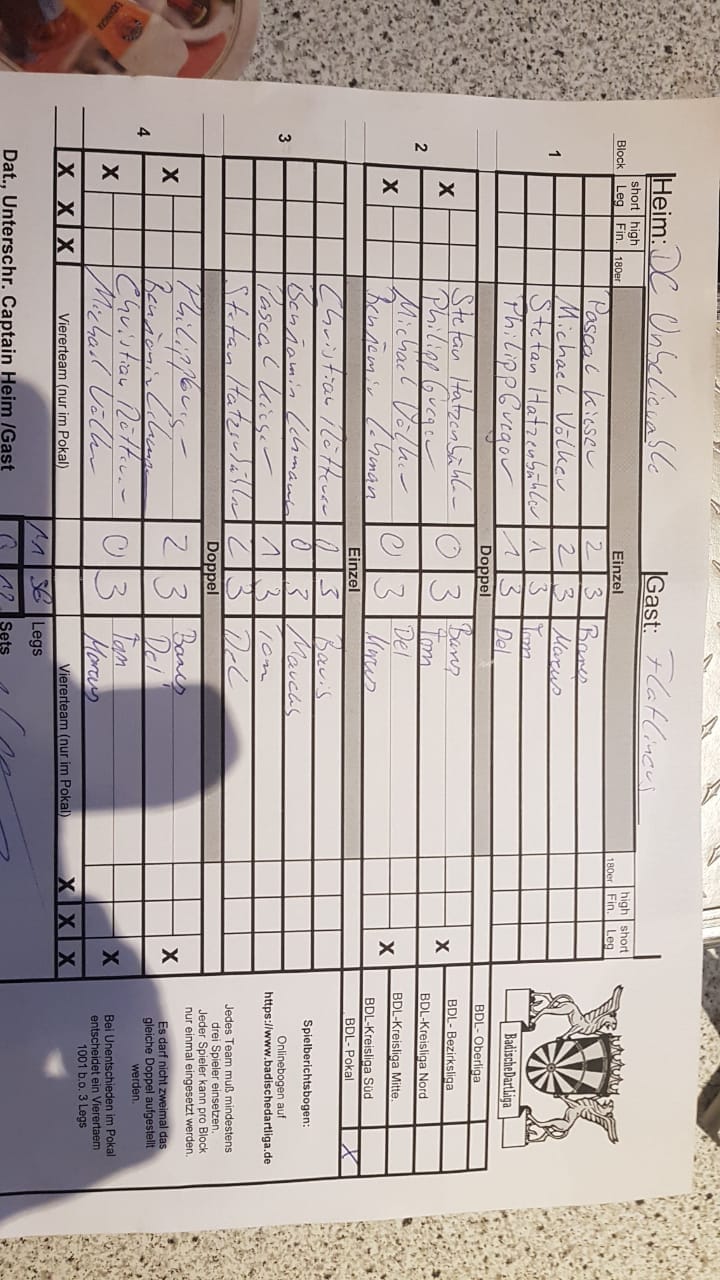 Heim: DC Unbelievable Gast: Flatliners
Block short Leg high Fin. 180er Einzel 180er high Fin. short Leg
1
Pascal Kieser 2 3 Baris
Michael Völker 2 3 Marcus
Stefan Hatzenbühler 1 3 Tom
Philipp Gregor 1 3 Del
Doppel
2
X Stefan Hatzenbühler 0 3 Baris X
Philipp Gregor Tom
X Michael Völker 0 3 Del X
Benjamin Lehman Marcus
Einzel
3
Christian 0 3 Baris
Benjamin Lehmann 0 3 Marcus
Pascal Kieser 1 3 Tom
Stefan Hatzenbühler 2 3 Del
Doppel
4
X Philipp 2 3 Baris X
Benjamin Del
X Christian 0 3 Tom X
Michael Völker Marcus
X X X Viererteam (nur im Pokal) Viererteam (nur im Pokal) X X X
11 36 Legs
0 12 Sets
Dat., Unterschr. Captain Heim /Gast
BadischeDartLiga
BDL- Oberliga
BDL- Bezirksliga
BDL-Kreisliga Nord
BDL-Kreisliga Mitte.
BDL-Kreisliga Süd
BDL- Pokal X
Spielberichtsbogen:
Onlinebogen auf
https://www.badischedartliga.de
Jedes Team muß mindestens
drei Spieler einsetzen.
Jeder Spieler kann pro Block
nur einmal eingesetzt werden.
Es darf nicht zweimal das
gleiche Doppel aufgestellt
werden.
Bei Unentschieden im Pokal
entscheidet ein Vierertaem
1001 b.o. 3 Legs